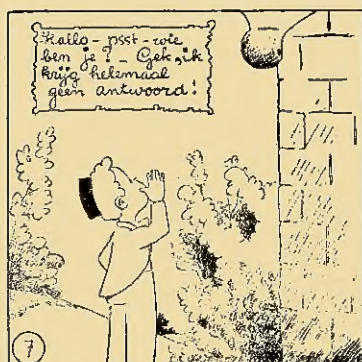 Hallo - psst - wie
ben je? - Gek, ik
krijg helemaal
geen antwoord!
7